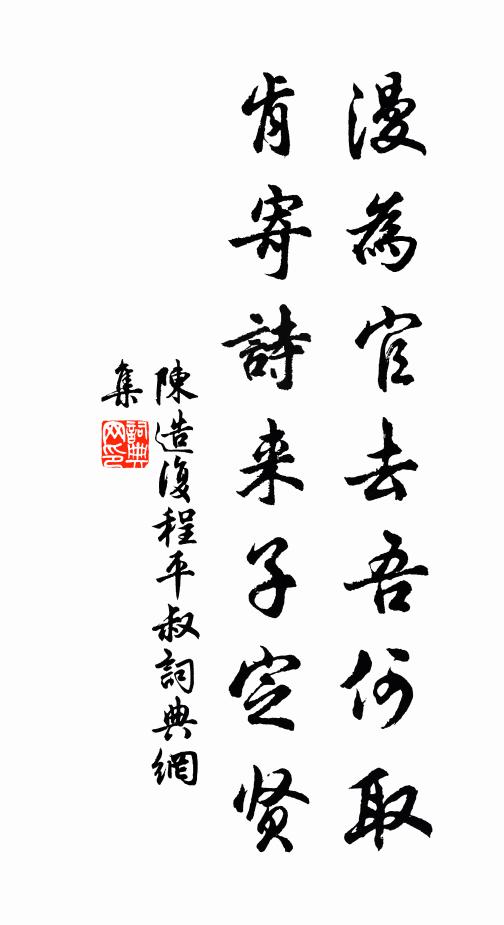 漫為官去吾何取
肯寄詩来子定贤
陳造復程平叔詞典網
集
詞典
网印